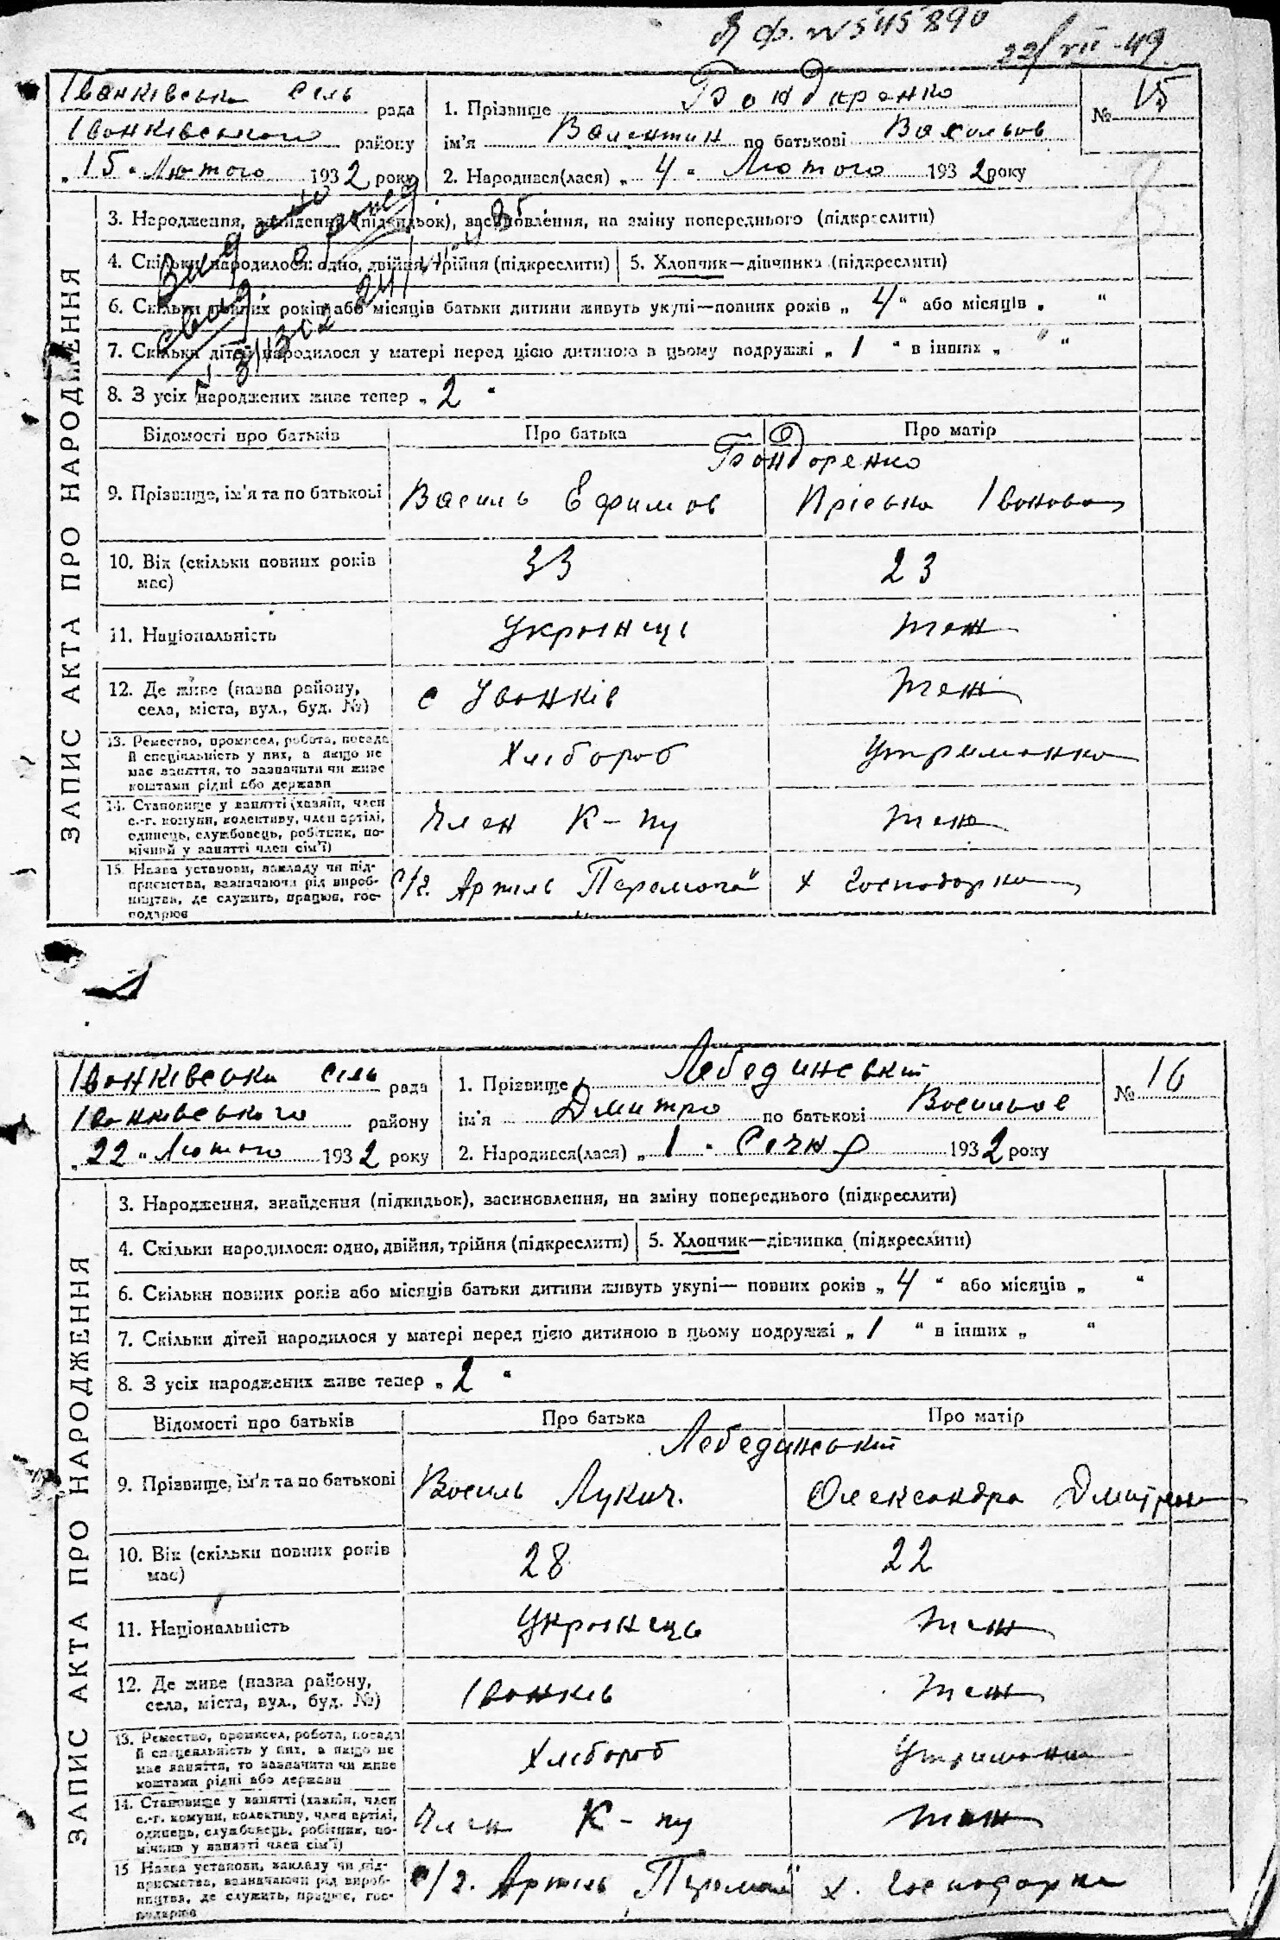 ф. № 545890
22/VII-49
Іванківська сіль рада
Іванківського району
„15" Лютого 1932 року
1. Прізвище Бондаренко
ім'я Валентин по батькові Васильов
2. Народився(лася) „4" Лютого 1932 року
№ 15
ЗАПИС АКТА ПРО НАРОДЖЕННЯ
3. Народження, знайдення (підкидьок), засиновлення, на зміну попереднього (підкреслити)
4. Скільки народилося: одно, двійня, трійня (підкреслити) 5. Хлопчик—дівчинка (підкреслити)
6. Скільки повних років або місяців батьки дитини живуть укупі—повних років „4" або місяців „ "
7. Скільки дітей народилося у матері перед цією дитиною в цьому подружжі „1" в інших „ "
8. З усіх народжених живе тепер „2"
Відомості про батьків Про батька Про матір
Бондоренко
9. Прізвище, ім'я та по батькові Василь Ефимов Пріська Іванова
10. Вік (скільки повних років має) 33 23
11. Національність Украінець теж
12. Де живе (назва району, села, міста, вул., буд. №) с Іванків теж
13. Ремество, промисел, робота, посада й спеціяльність у них, а якщо не має заняття, то зазначити чи живе коштами рідні або держави Хлібороб Утриманка
14. Становище у занятті (хазяїн, член с.-г. комуни, колективу, член артілі, одинець, службовець, робітник, помічний у занятті член сім'ї) Член К-пу теж
15. Назва установи, закладу чи підприємства, зазначаючи рід виробництва, де служить, працює, господарює с/г. Артиль Перемога" х господарка
Іванківська сіль рада
Іванківського району
„22" Лютого 1932 року
1. Прізвище Лебединський
ім'я Дмитро по батькові Васильов
2. Народився(лася) „1" Січня 1932 року
№ 16
ЗАПИС АКТА ПРО НАРОДЖЕННЯ
3. Народження, знайдення (підкидьок), засиновлення, на зміну попереднього (підкреслити)
4. Скільки народилося: одно, двійня, трійня (підкреслити) 5. Хлопчик—дівчинка (підкреслити)
6. Скільки повних років або місяців батьки дитини живуть укупі— повних років „4" або місяців „ "
7. Скільки дітей народилося у матері перед цією дитиною в цьому подружжі „1" в інших „ "
8. З усіх народжених живе тепер „2"
Відомості про батьків Про батька Про матір
Лебединській
9. Прізвище, ім'я та по батькові Василь Лукич. Олександра Дмитрова
10. Вік (скільки повних років має) 28 22
11. Національність Украінець теж
12. Де живе (назва району, села, міста, вул., буд. №) Іванків теж
13. Ремество, промисел, робота, посада й спеціяльність у них, а якщо не має заняття, то зазначити чи живе коштами рідні або держави Хлібороб Утриманка
14. Становище у занятті (хазяїн, член с.-г. комуни, колективу, член артілі, одинець, службовець, робітник, помічний у занятті член сім'ї) Член К-пу теж
15 Назва установи, закладу чи підприємства, зазначаючи рід виробництва, де служить, працює, господарює с/г. Артиль Перемога" х. господарка